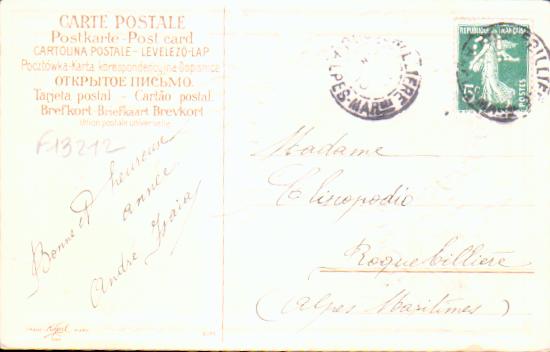 CARTE POSTALE
Postkarte - Post card
CARTOLINA POSTALE - LEVELEZŐ-LAP
Pocztówka-Karta korespondencyjna-Dopisnice
ОТКРЫТОЕ ПИСЬМО.
Tarjeta postal - Cartão postal
Brefkort-Briefkaart Brevkort
Union postale universelle
F13212
Bonne et heureuse
année
André Isaïa
ROQUEBILLIERE
ALPES-MARmes
REPUBLIQUE FRANÇAISE
5c
POSTES
Madame
Clinopodio
Roquebillière
(Alpes Maritimes)